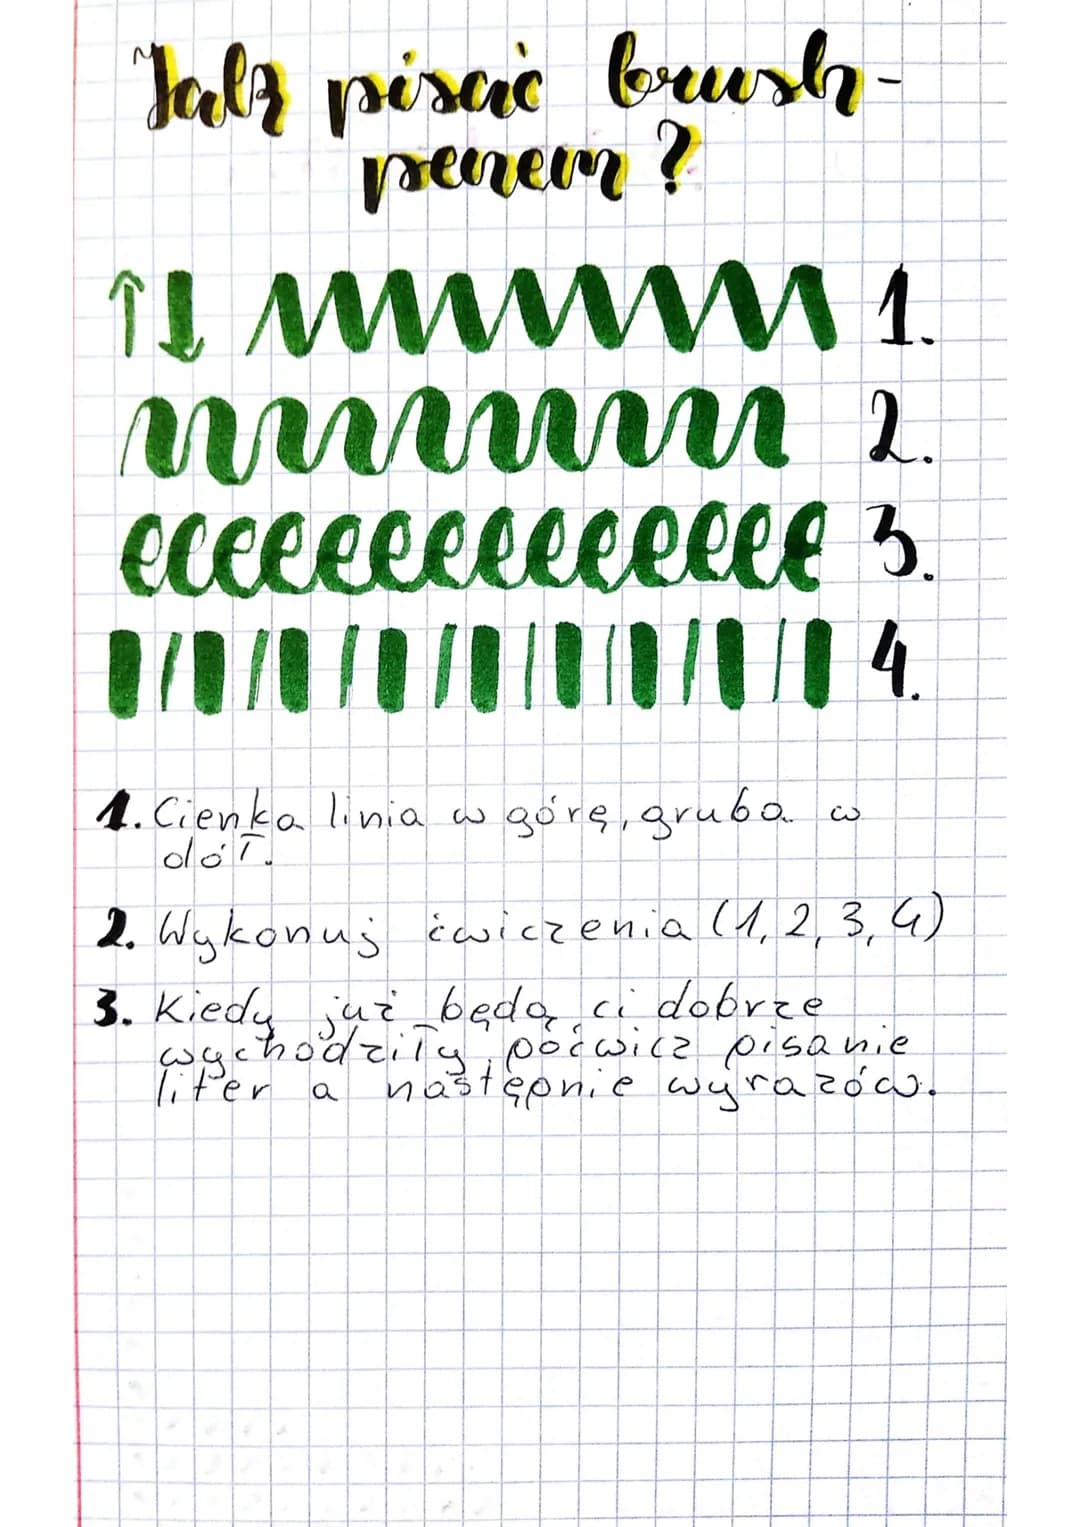 Jak pisać brush-
penem?
↑↓ 1.
2.
eeeeeeeeeeeeeee 3.
4.
1. Cienka linia w górę, gruba w
dół.
2. Wykonuj ćwiczenia (1, 2, 3, 4)
3. Kiedy już będą ci dobrze
wychodziły, poćwicz pisanie
liter a następnie wyrazów.